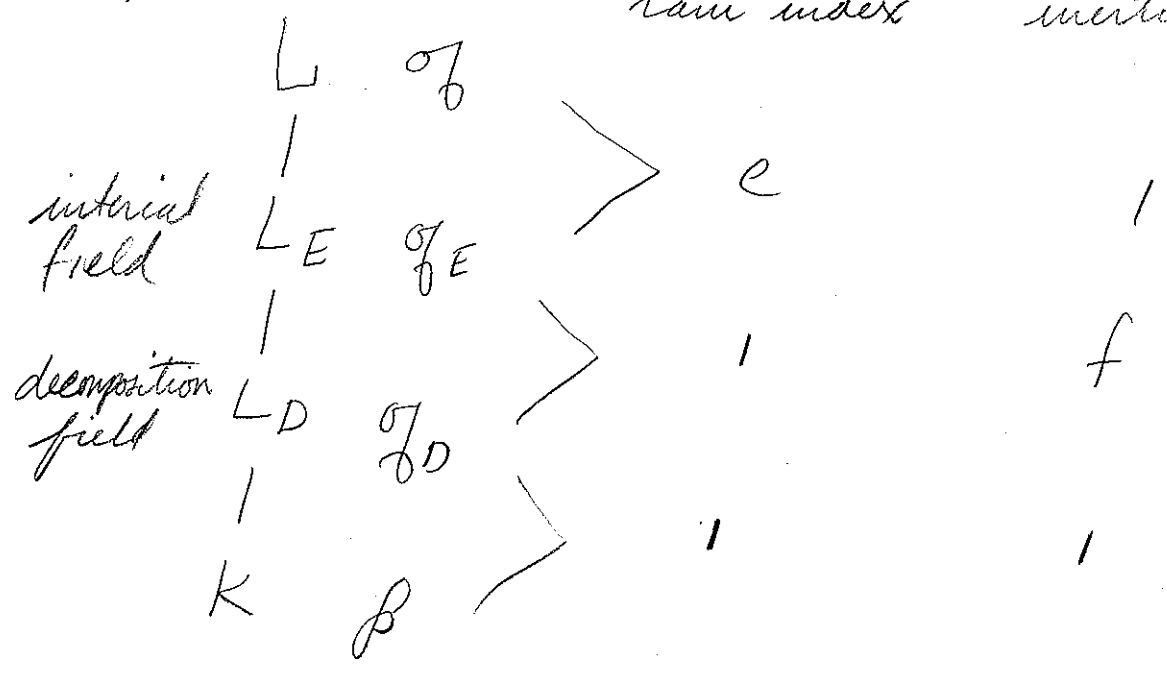 ram index inerti
L 𝔮
e 1
interial
field L_E 𝔮_E
1 f
decomposition
field L_D 𝔮_D
1 1
K ℘